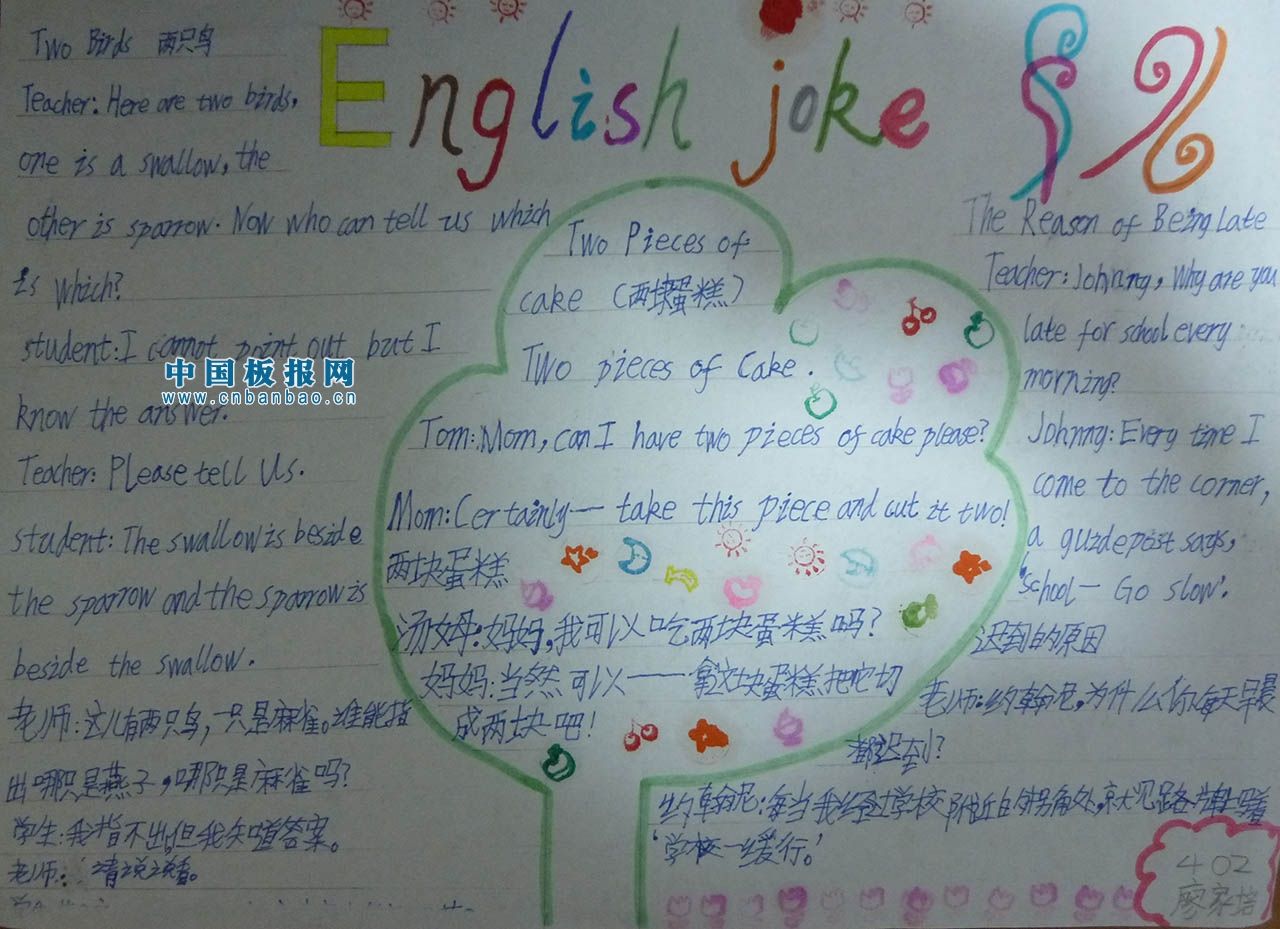 English joke
Two Birds 两只鸟
Teacher: Here are two birds,
one is a swallow, the
other is sparrow. Now who can tell us which
is which?
student: I cannot point out but I
know the answer.
Teacher: Please tell Us.
student: The swallow is beside
the sparrow and the sparrow is
beside the swallow.
老师:这儿有两只鸟,一只是麻雀。谁能指
出哪只是燕子,哪只是麻雀吗?
学生:我指不出,但我知道答案。
老师:请说说看。
中国板报网
www.cnbanbao.cn
Two Pieces of
cake (两块蛋糕)
Two pieces of Cake.
Tom: Mom, can I have two pieces of cake please?
Mom: Certainly — take this piece and cut it two!
两块蛋糕
汤姆:妈妈,我可以吃两块蛋糕吗?
妈妈:当然可以——拿这块蛋糕把它切
成两块吧!
The Reason of Being Late
Teacher: Johnny, Why are you
late for school every
morning?
Johnny: Every time I
come to the corner,
a guidepost says,
'school — Go slow'.
迟到的原因
老师:约翰尼,为什么你每天早晨
都迟到?
约翰尼:每当我经过学校附近的拐角处,就见路牌上写着
'学校—缓行.'
402
廖家培